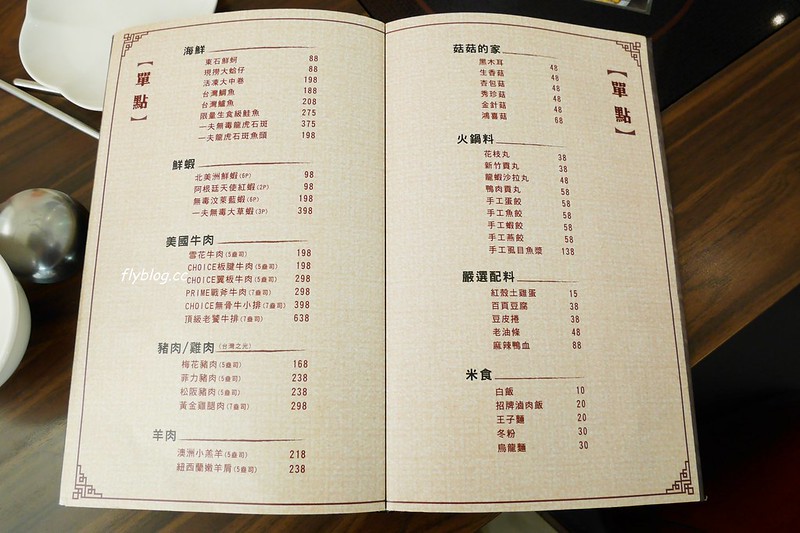 【單點】
海鮮
東石鮮蚵 88
現撈大蛤仔 88
活凍大中卷 198
台灣鯛魚 188
台灣鱸魚 208
限量生食級鮭魚 275
一夫無毒龍虎石斑 375
一夫龍虎石斑魚頭 198
鮮蝦
北美洲鮮蝦(6P) 98
阿根廷天使紅蝦(2P) 98
無毒汶萊藍蝦(6P) 198
一夫無毒大草蝦(3P) 398
美國牛肉
雪花牛肉(5盎司) 198
CHOICE板腱牛肉(5盎司) 198
CHOICE翼板牛肉(5盎司) 298
PRIME戰斧牛肉(7盎司) 298
CHOICE無骨牛小排(7盎司) 398
頂級老饕牛排(7盎司) 638
豬肉/雞肉(台灣之光)
梅花豬肉(5盎司) 168
菲力豬肉(5盎司) 238
松阪豬肉(5盎司) 238
黃金雞腿肉(7盎司) 298
羊肉
澳洲小羔羊(5盎司) 218
紐西蘭嫩羊肩(5盎司) 238
flyblog.cc
【單點】
菇菇的家
黑木耳 48
生香菇 48
杏包菇 48
秀珍菇 48
金針菇 48
鴻喜菇 68
火鍋料
花枝丸 38
新竹貢丸 38
龍蝦沙拉丸 48
鴨肉貢丸 58
手工蛋餃 58
手工魚餃 58
手工蝦餃 58
手工燕餃 58
手工虱目魚漿 138
嚴選配料
紅殼土雞蛋 15
百頁豆腐 38
豆皮捲 38
老油條 48
麻辣鴨血 88
米食
白飯 10
招牌滷肉飯 20
王子麵 20
冬粉 30
烏龍麵 30